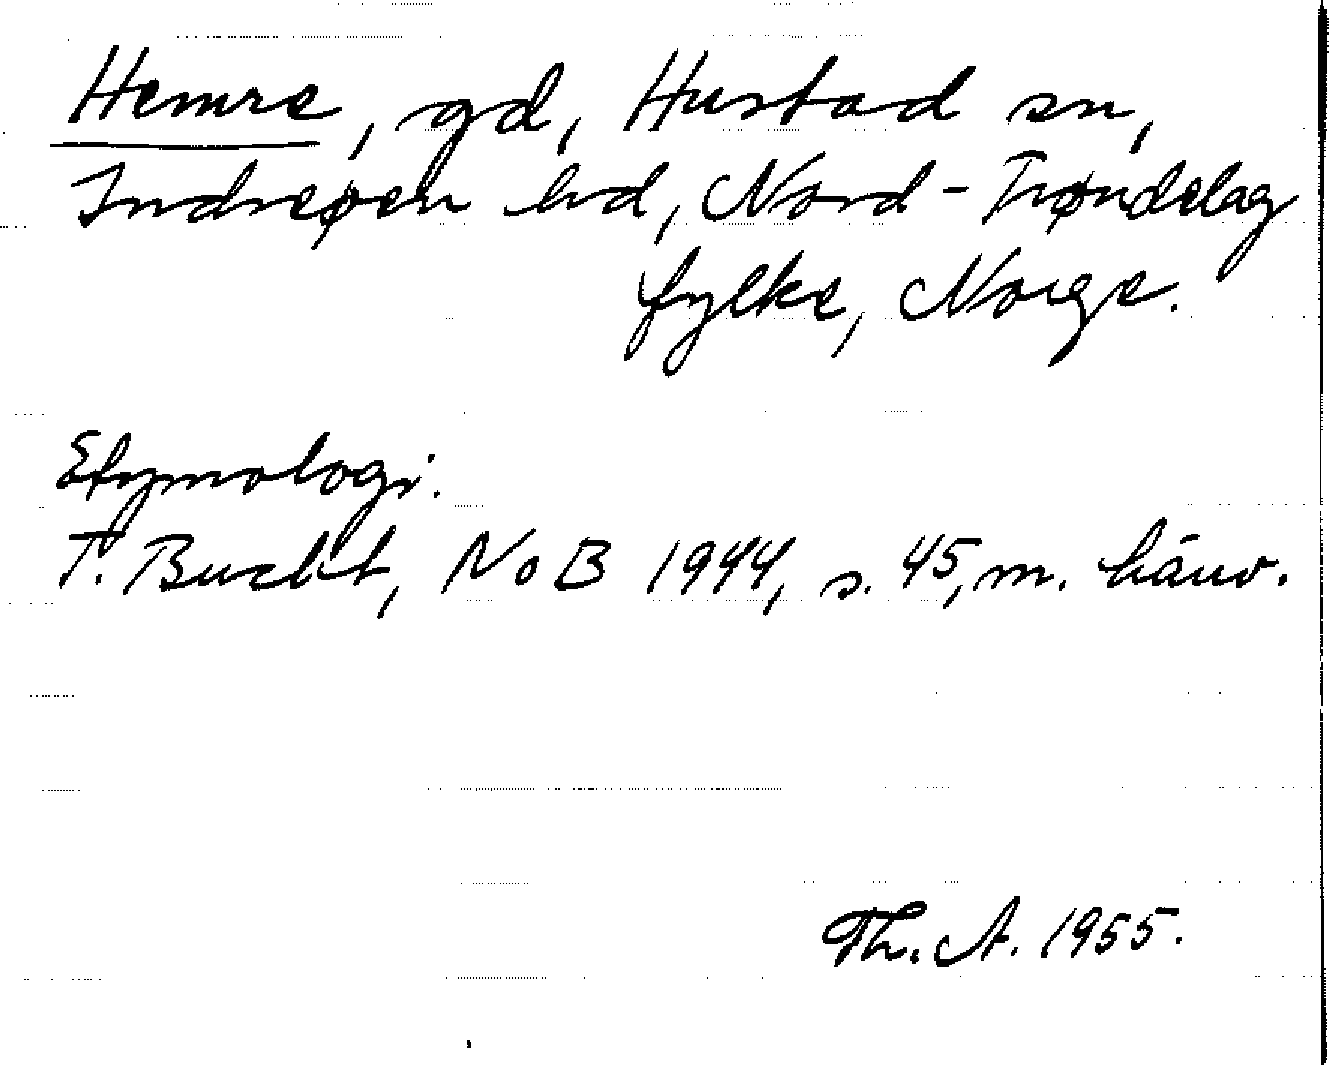 Hemre, gd, Hustad sn,
Indreøen hd, Nord-Trøndelag
fylke, Norge.
Etymologi:
T. Bucht, NoB 1944, s. 45, m. hänv.
Th. A. 1955.